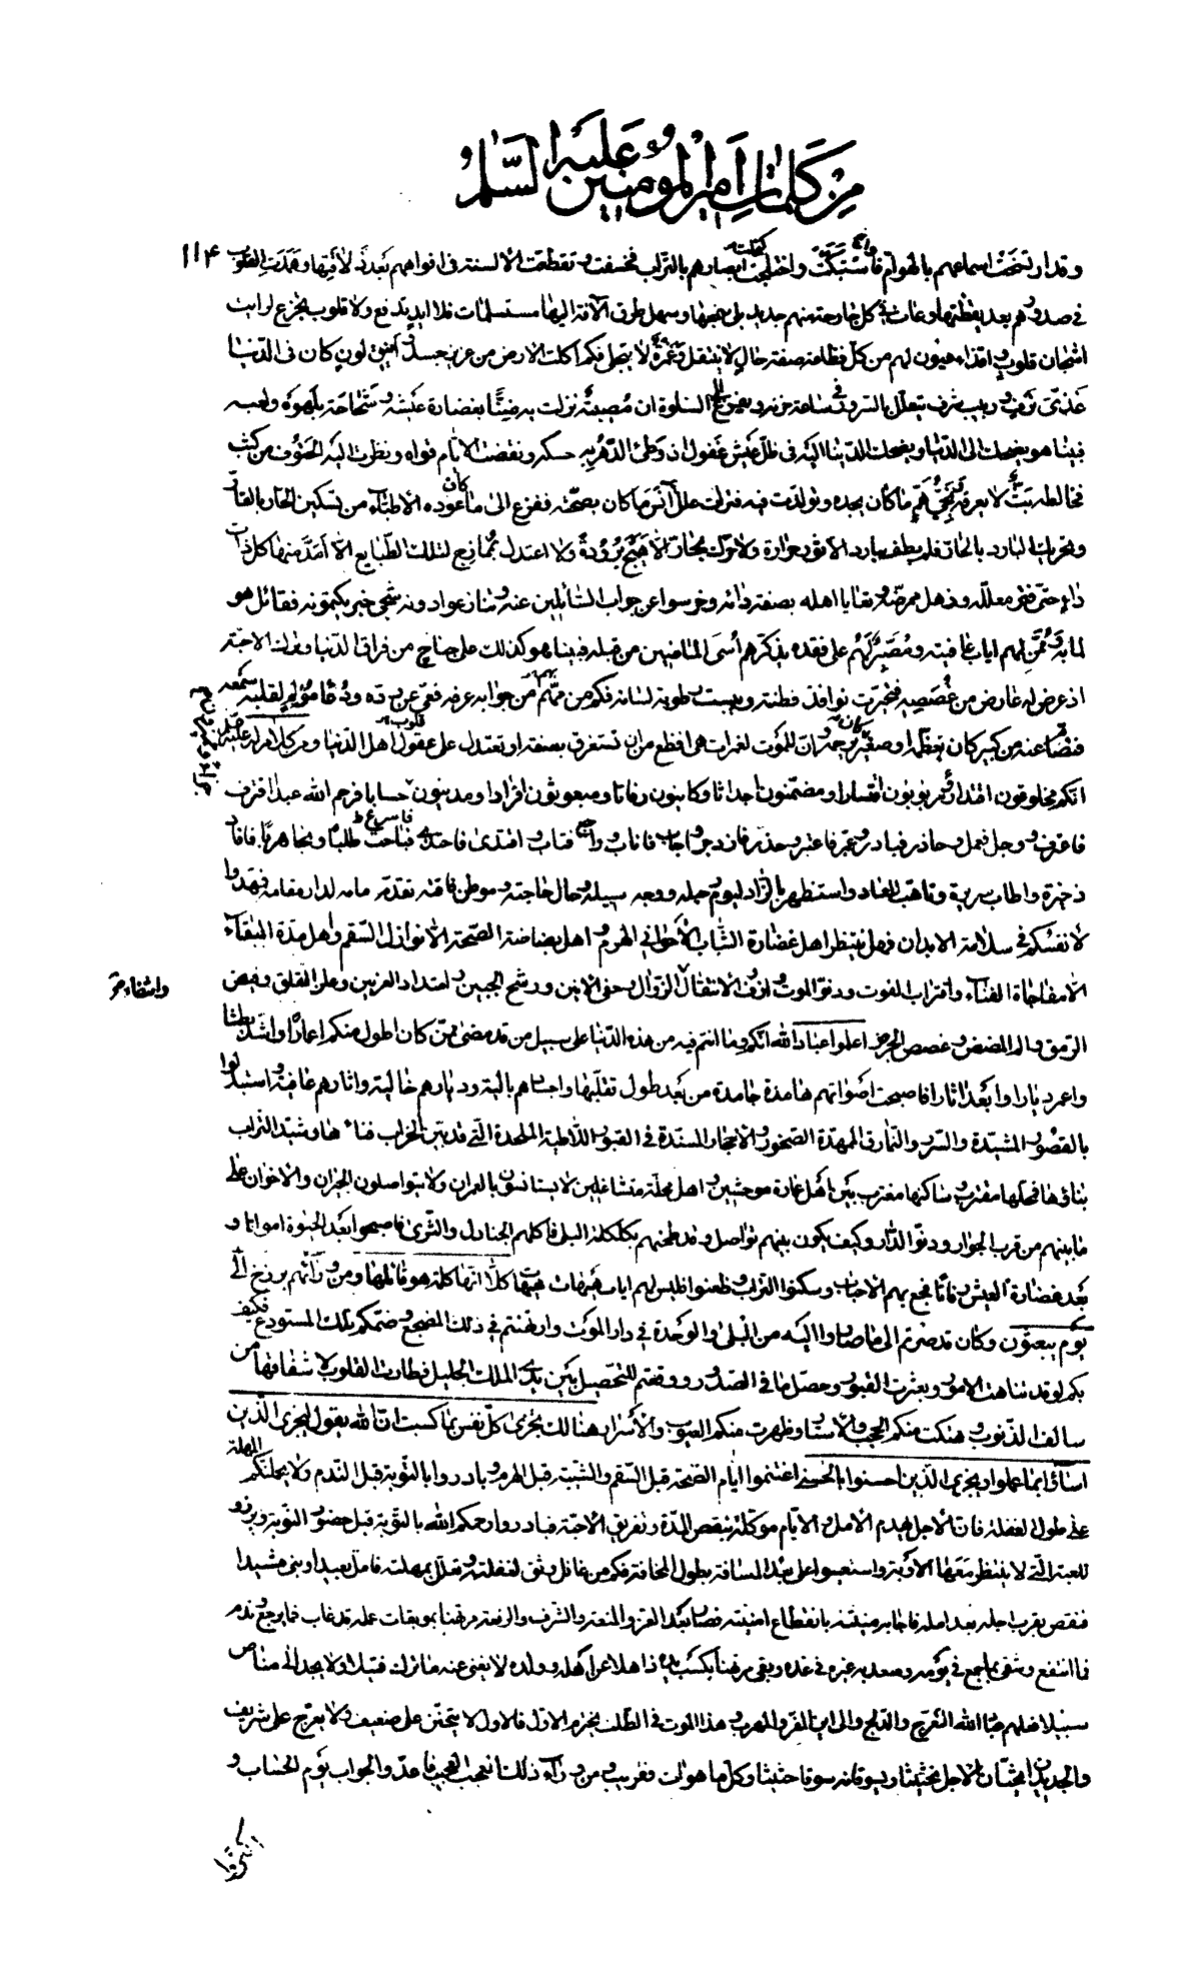 من كلمات أمير المؤمنين عليه السلام
١١٤
وقد ارتسخت اسماعهم بالهوام فاستكت واكتحلت ابصارهم بالتراب فخسفت وتقطعت الألسنة في افواههم بعد ذلاقتها وهمدت القلوب
في صدورهم بعد يقظتها وعاث في كل جارحة منهم جديد بلى سمجها وسهل طرق الآفة اليها مستسلمات فلا ايد تدفع ولا قلوب تجزع لرأيت
اشجان قلوب واقذاء عيون لهم من كل فظاعة صفة حال لا تنتقل وغمرة لا تنجلي فكم اكلت الارض من عزيز جسد وانيق لون كان في الدنيا
غذي ترف وربيب شرف يتعلل بالسرور في ساعة حزنه ويفزع الى السلوة ان مصيبة نزلت به ضنا بغضارة عيشه وشحاحة بلهوه ولعبه
فبينا هو يضحك الى الدنيا ويضحك الدنيا اليه في ظل عيش غفول اذ وطئ الدهر به حسكه ونقضت الايام قواه ونظرت اليه الحتوف من كثب
فخالطه بث لا يعرفه ونجي هم ما كان يجده وتولدت فيه فترات علل آنس ما كان بصحته ففزع الى ما كان عوده الاطباء من تسكين الحار بالقار
وتحريك البارد بالحار فلم يطف ببارد الا ثور حرارة ولا حرك بحار الا هيج برودة ولا اعتدل بممازج لتلك الطبايع الا امد منها كل ذات
داء حتى فتر معلله وذهل ممرضه وتعايا اهله بصفة دائه وخرسوا عن جواب السائلين عنه وتنازعوا دونه شجي خبر يكتمونه فقائل هو
لما به وممن لهم اياب عافيته ومصبر لهم على فقده يذكرهم أسى الماضين من قبله فبينا هو كذلك على جناح من فراق الدنيا وترك الاحبة
اذ عرض له عارض من غصصه فتحيرت نوافذ فطنته ويبست رطوبة لسانه فكم من مهم من جوابه عرفه فعي عن رده ودعاء مؤلم لقلبه سمعه
فتصام عنه من كبير كان يعظمه او صغير كان يرحمه وان للموت لغمرات هي افظع من ان تستغرق بصفة او تعتدل على عقول اهل الدنيا ومن كلام له عليه
انكم مخلوقون اقتدارا ومربوبون اقتسارا ومضمنون اجداثا وكائنون رفاتا ومبعوثون افرادا ومدينون حسابا فرحم الله عبدا اقترف
فاعترف ووجل فعمل وحاذر فبادر وعبر فاعتبر وحذر فازدجر واجاب فاناب وراجع فتاب واقتدى فاحتذى فباحث طلبا ونجا هربا فافاد
ذخيرة واطاب سريرة وتاهب للمعاد واستظهر بالزاد ليوم رحيله ووجه سبيله وحال حاجته وموطن فاقته تقدم امامه لدار مقامه فمهدوا
لانفسكم في سلامة الابدان فهل ينتظر اهل غضارة الشباب الا حواني الهرم واهل بضاضة الصحة الا نوازل السقم واهل مدة البقاء
الا مفاجاة الفناء واقتراب الفوت ودنو الموت وازف الانتقال الزوال وحفز الانين ورشح الجبين وامتداد العرنين وعلز القلق وفيض
الرمق والم المضض وغصص الجرض اعلموا عباد الله انكم وما انتم فيه من هذه الدنيا على سبيل من قد مضى ممن كان اطول منكم اعمارا واشد بطشا
واعمر ديارا وابعد آثارا فاصبحت اصواتهم هامدة خامدة من بعد طول تقلبها واجسادهم بالية وديارهم خالية وآثارهم عافية واستبدلوا
بالقصور المشيدة والسرر والنمارق الممهدة الصخور والاحجار المسندة في القبور اللاطية الملحدة التي قد بين الخراب فناءها وشيد التراب
بناؤها فمحلها مقترب وساكنها مغترب بين اهل عمارة موحشين واهل محلة متشاغلين لا يستانسون بالعمران ولا يتواصلون الجيران والاخوان على
ما بينهم من قرب الجوار ودنو الدار وكيف يكون بينهم تواصل وقد طحنهم بكلكله البلى فاكلهم الجنادل والثرى فاصبحوا بعد الحيوة امواتا و
بعد غضارة العيش رفاتا فجع بهم الاحباب وسكنوا التراب وظعنوا فليس لهم اياب هيهات هيهات كلا انها كلمة هو قائلها ومن ورائهم برزخ الى
يوم يبعثون وكان قد صرتم الى ما صاروا اليه من البلى والوحدة في دار الموت وارتهنتم في ذلك المضجع وضمكم ذلك المستودع فكيف
بكم لو قد تناهت الامور وبعثرت القبور وحصل ما في الصدور ووقفتم للتحصيل بين يدي الملك الجليل فطارت القلوب لاشفاقها من
سالف الذنوب وهتكت منكم الحجب والاستار وظهرت منكم العيوب والاسرار هنالك تجزى كل نفس بما كسبت ان الله يقول ليجزي الذين
اساؤا بما عملوا ويجزي الذين احسنوا بالحسنى اغتنموا ايام الصحة قبل السقم والشيبة قبل الهرم وبادروا بالتوبة قبل الندم ولا يحملنكم المهلة
على طول الغفلة فان الاجل يهدم الامل والايام موكلة بنقص المدة وتفريق الاحبة فبادروا رحمكم الله بالتوبة قبل حضور النوبة وبرزوا
للغيبة التي لا ينتظر معها الاوبة واستعينوا على بعد المسافة بطول المخافة فكم من غافل وثق لغفلته وتعلل بمهلته فامل بعيدا وبنى مشيدا
فنقص بقرب اجله بعد امله فاجابه منيته بانقطاع امنيته فصار بعد العز والمنعة والشرف والرفعة مرتهنا بموبقات عمله قد غاب فما يرجع وندم
فما انتفع وشقي بما جمع في يومه وسعد به غيره في غده وبقي مرتهنا بكسب يده ذاهلا عن اهله وولده لا يغني عنه ما ترك فتيلا ولا يجد الى مناص
سبيلا فعلام عباد الله التعرج والدلج والى اين المفر والمهرب وهذا الموت في الطلب يخترم الاول فالاول لا يتحنن على ضعيف ولا يعرج على شريف
والجديدان يحثان الاجل تحثيثا ويسوقانه سوقا حثيثا وكل ما هو آت فقريب ومن وراء ذلك العجب العجيب فاعدوا الجواب يوم الحساب و
اكثروا